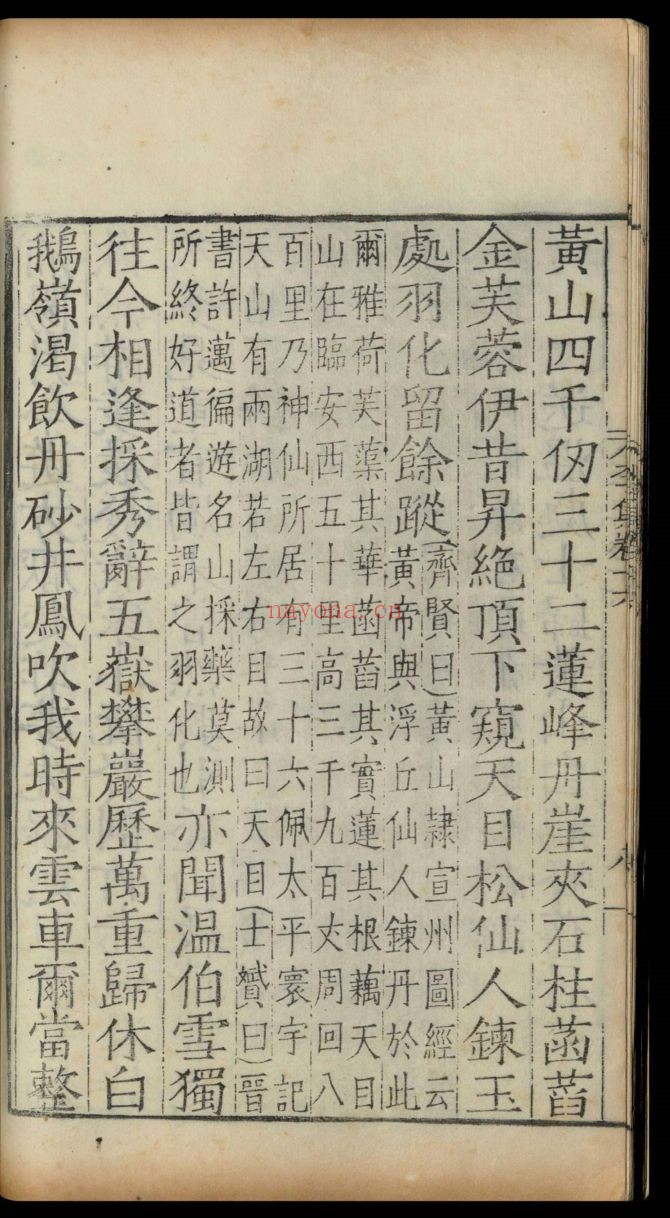 黃山四千仞三十二蓮峰丹崖夾石柱菡萏
金芙蓉伊昔昇絶頂下窺天目松仙人鍊玉
處羽化留餘蹤
齊賢曰黃山隷宣州圖經云
黃帝與浮丘仙人鍊丹於此
爾雅荷芙蕖其華菡萏其實蓮其根藕天目
山在臨安西五十里高三千九百丈周回八
百里乃神仙所居有三十六佩太平寰宇記
天山有兩湖若左右目故曰天目士贇曰晉
書許邁徧遊名山採藥莫測
所終好道者皆謂之羽化也
亦聞溫伯雪獨
往今相逢採秀辭五嶽攀巖歷萬重歸休白
鵝嶺渴飲丹砂井鳳吹我時來雲車爾當整
集卷十六
八
nayona.cn